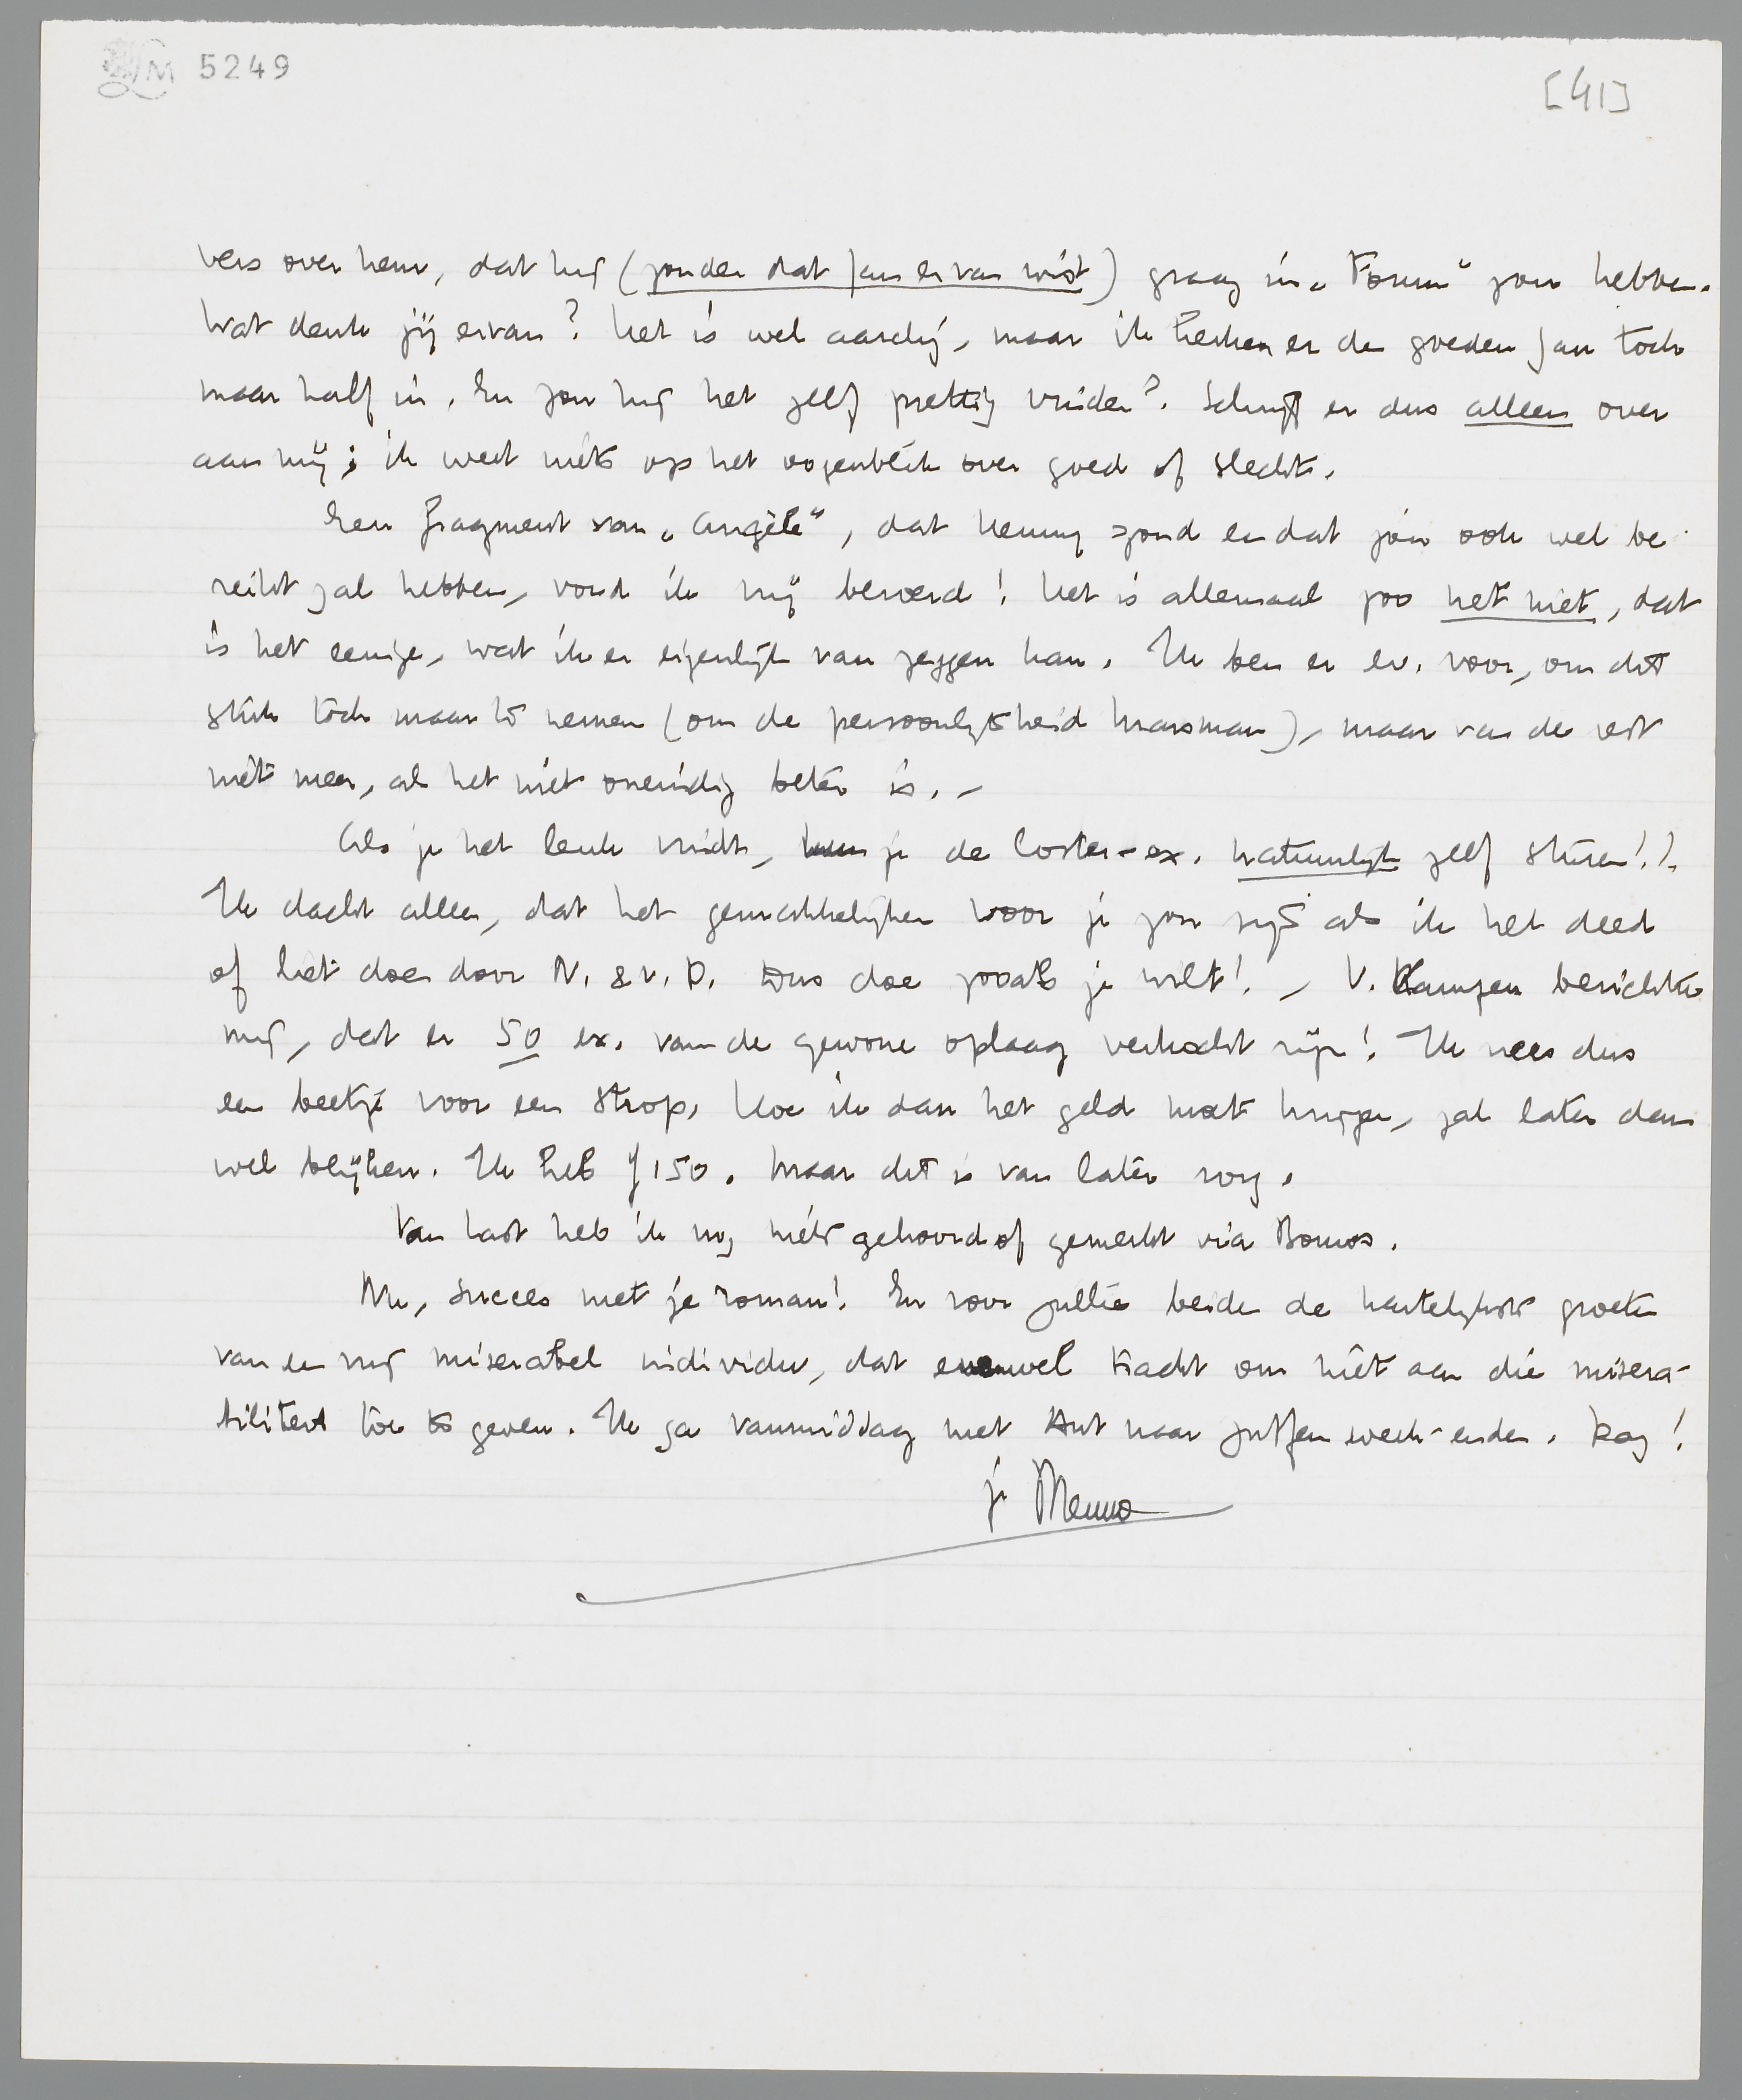 LM 5249
[41]
vers over hem, dat hij (zonder dat Jan ervan wist) graag in „Forum" zou hebben.
Wat denk jij ervan? Het is wel aardig, maar ik herken er den goeden Jan toch
maar half in. En zou hij het zelf prettig vinden? Schrijf er dus alleen over
aan mij; ik weet niets op het oogenblik over goed of slecht.
Een fragment van „Angèle", dat Henny zond en dat jou ook wel be
reikt zal hebben, vond ik vrij beroerd! Het is allemaal zoo het niet, dat
is het eenige, wat ik er eigenlijk van zeggen kan. Ik ben er ev. voor, om dit
stuk toch maar te nemen (om de persoonlijkheid Marsman), maar van de rest
niet meer, als het niet oneindig beter is. –
Als je het leuk vindt, kun je de Coster-ex. natuurlijk zelf sturen!!
Ik dacht alleen, dat het gemakkelijker voor je zou zijn als ik het deed
of liet doen door N. & v. D. Dus doe zooals je wilt! – V. Kampen berichtte
mij, dat er 50 ex. van de gewone oplaag verkocht zijn! Ik vrees dus
een beetje voor een strop. Hoe ik dan het geld moet krijgen, zal later dan
wel blijken. Ik heb ƒ150. Maar dit is van later zorg.
Van Last heb ik nog niets gehoord of gemerkt via Bouws.
Nu, succes met je roman! En voor jullie beide de hartelijkste groeten
van een vrij miserabel individu, dat evenwel tracht om niet aan die misera-
biliteit toe te geven. Ik ga vanmiddag met Ant naar Zutfen week-enden. Dag!
je Menno